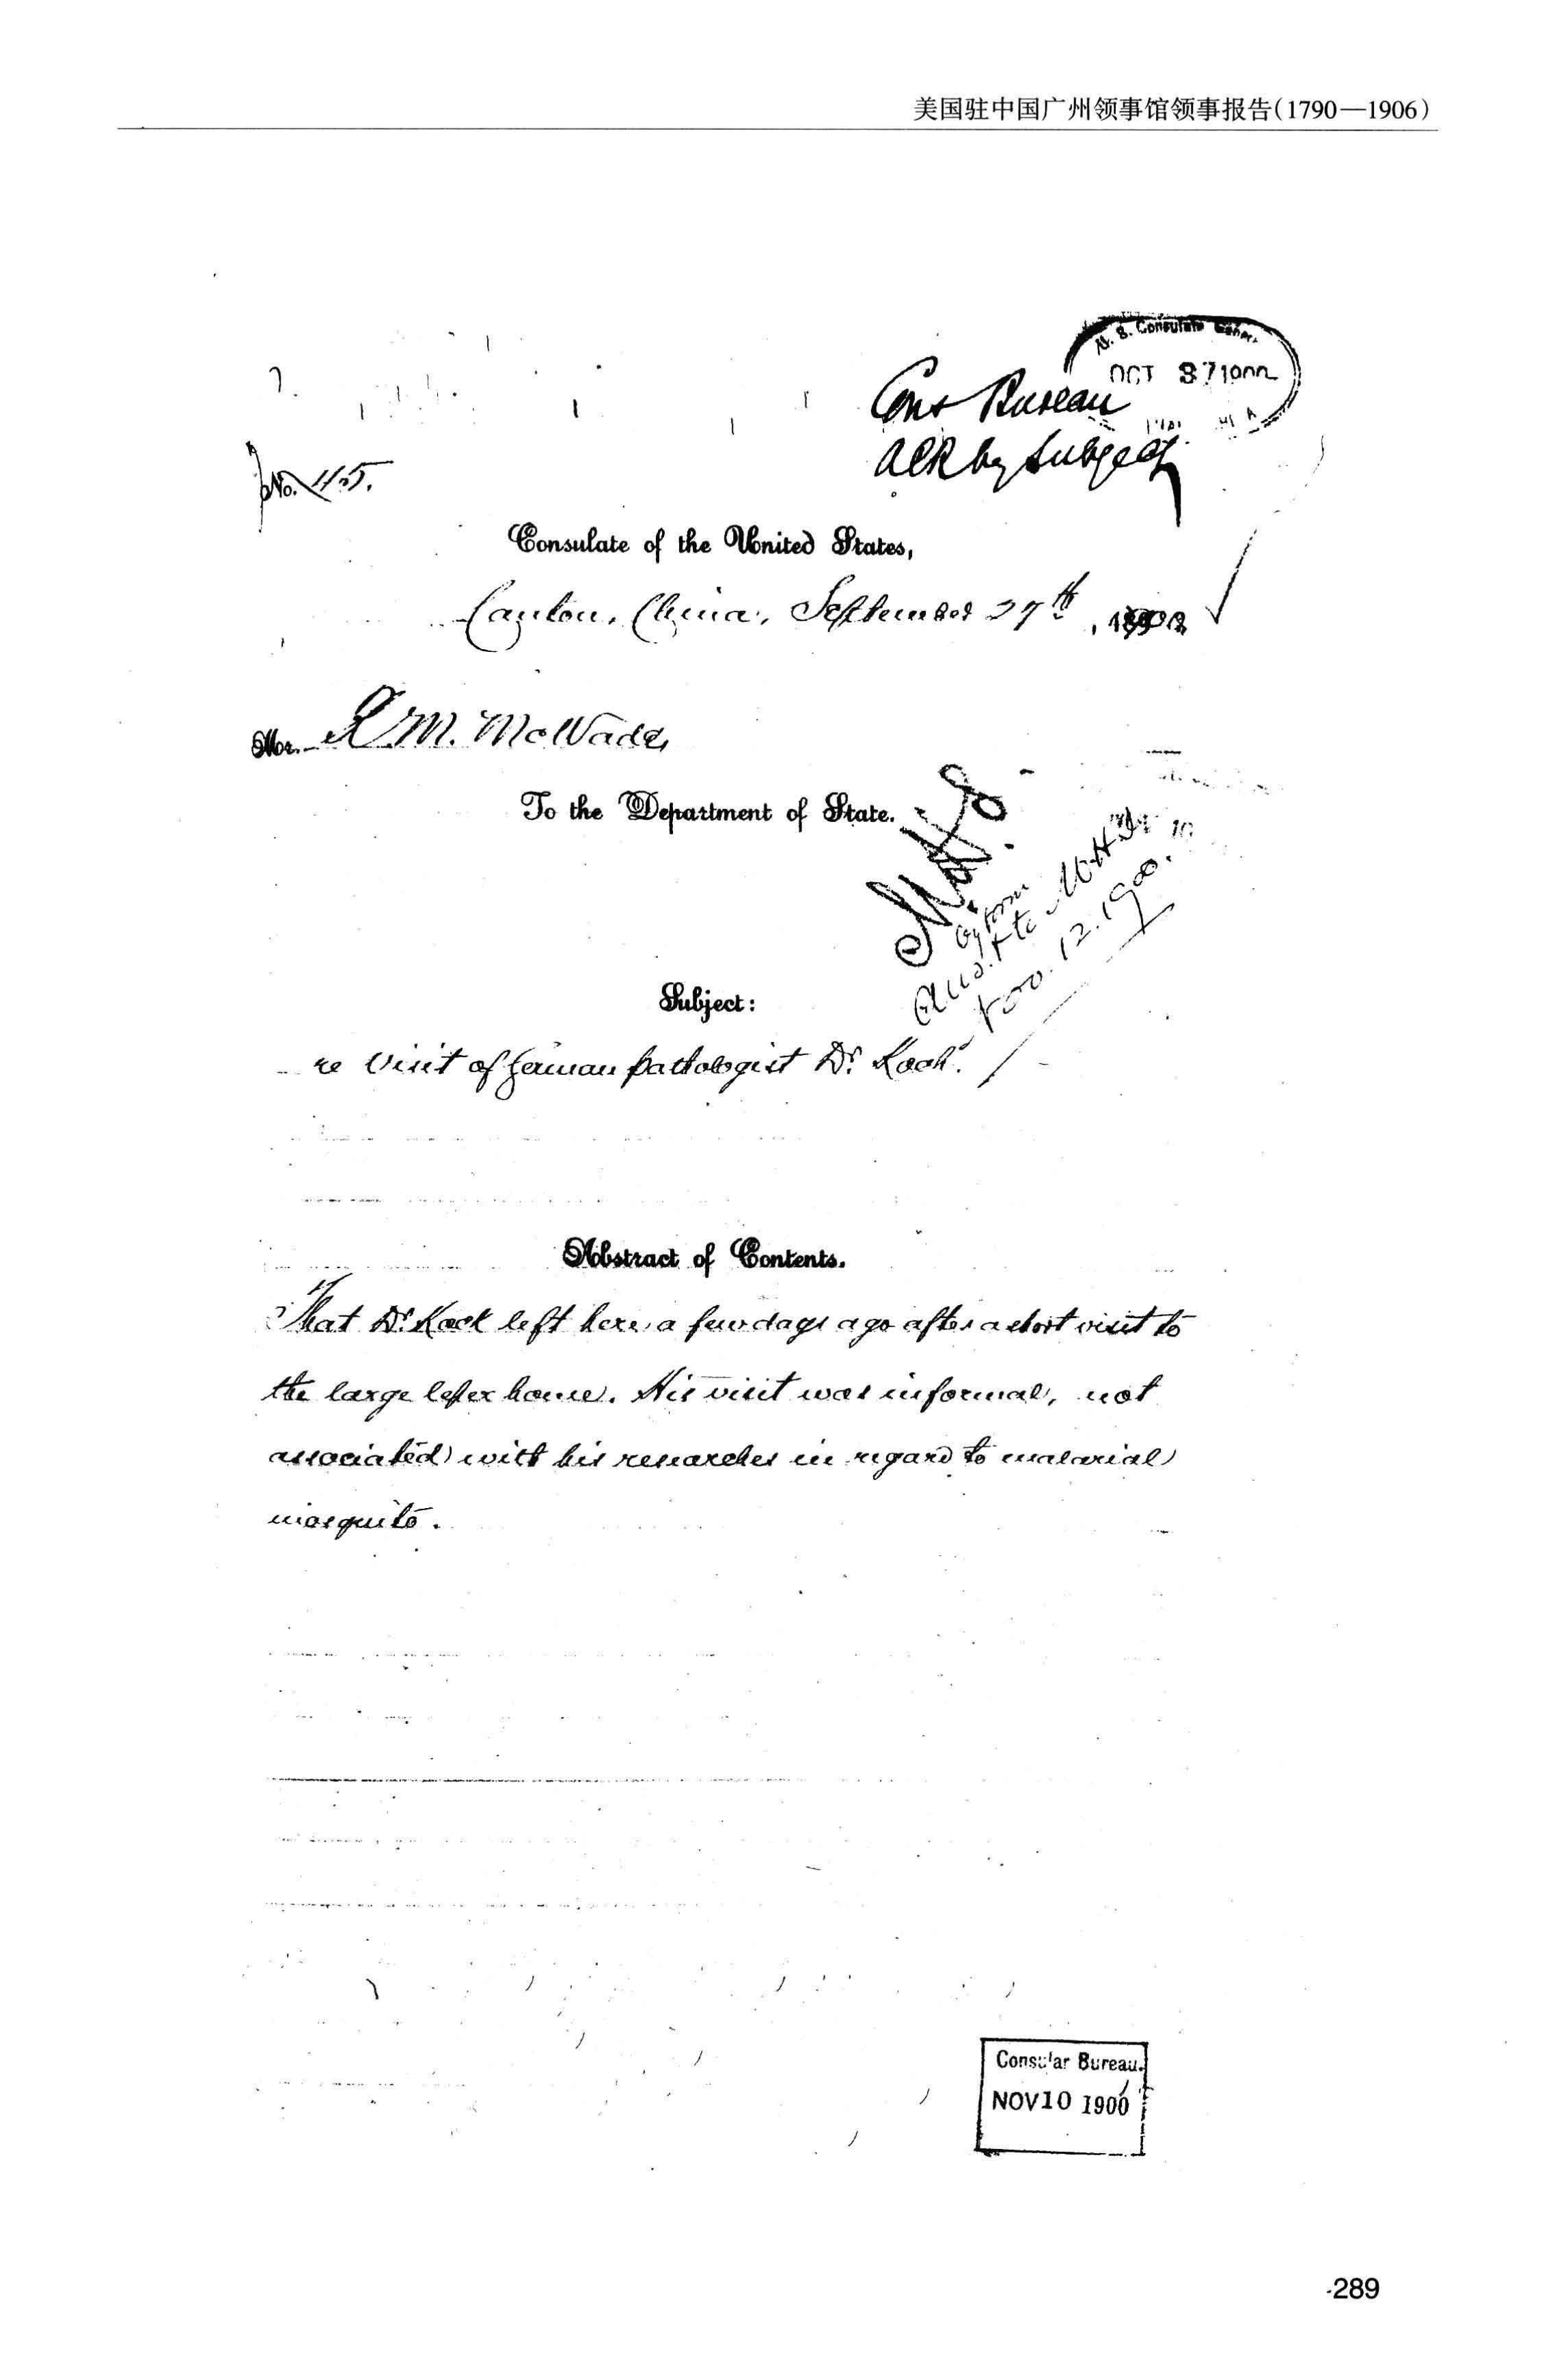 美国驻中国广州领事馆领事报告(1790—1906)
U. S. Consulate
OCT
Cons Bureau
ack by subject
No. 45.
Consulate of the United States,
Canton, China, September 27th, 1900
Mr. R. M. McWade,
To the Department of State.
12. 1900.
Subject:
re Visit of German pathologist Dr. Koch.
Abstract of Contents.
That Dr. Koch left here a few days ago after a short visit to
the large leper house. His visit was informal, not
associated with his researches in regard to malarial
mosquito.
Consular Bureau.
NOV 10 1900
289